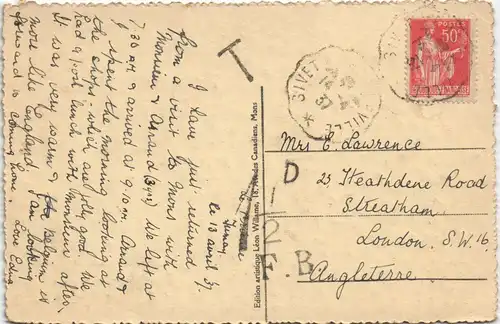 le 13 avril 37.
I have just returned
from a visit to Mons with
Monsieur & Armand (3,rd) We left at
7.30 a.m. & arrived at 9.10 a.m. Armand &
I spent the morning looking at
the shops, which are jolly good. We
had a good lunch with Monsieur after.
It was very warm & Belgium is
more like England. I am looking
forward to coming home. Love Edna
T
GIVET
14
37
VILLE
50c
Mrs E. Lawrence
23, Heathdene Road
Streatham
London. S.W.16.
Angleterre.
D
12
G.B
Edition artistique Léon Willame, 18, Rue des Canadiens, Mons